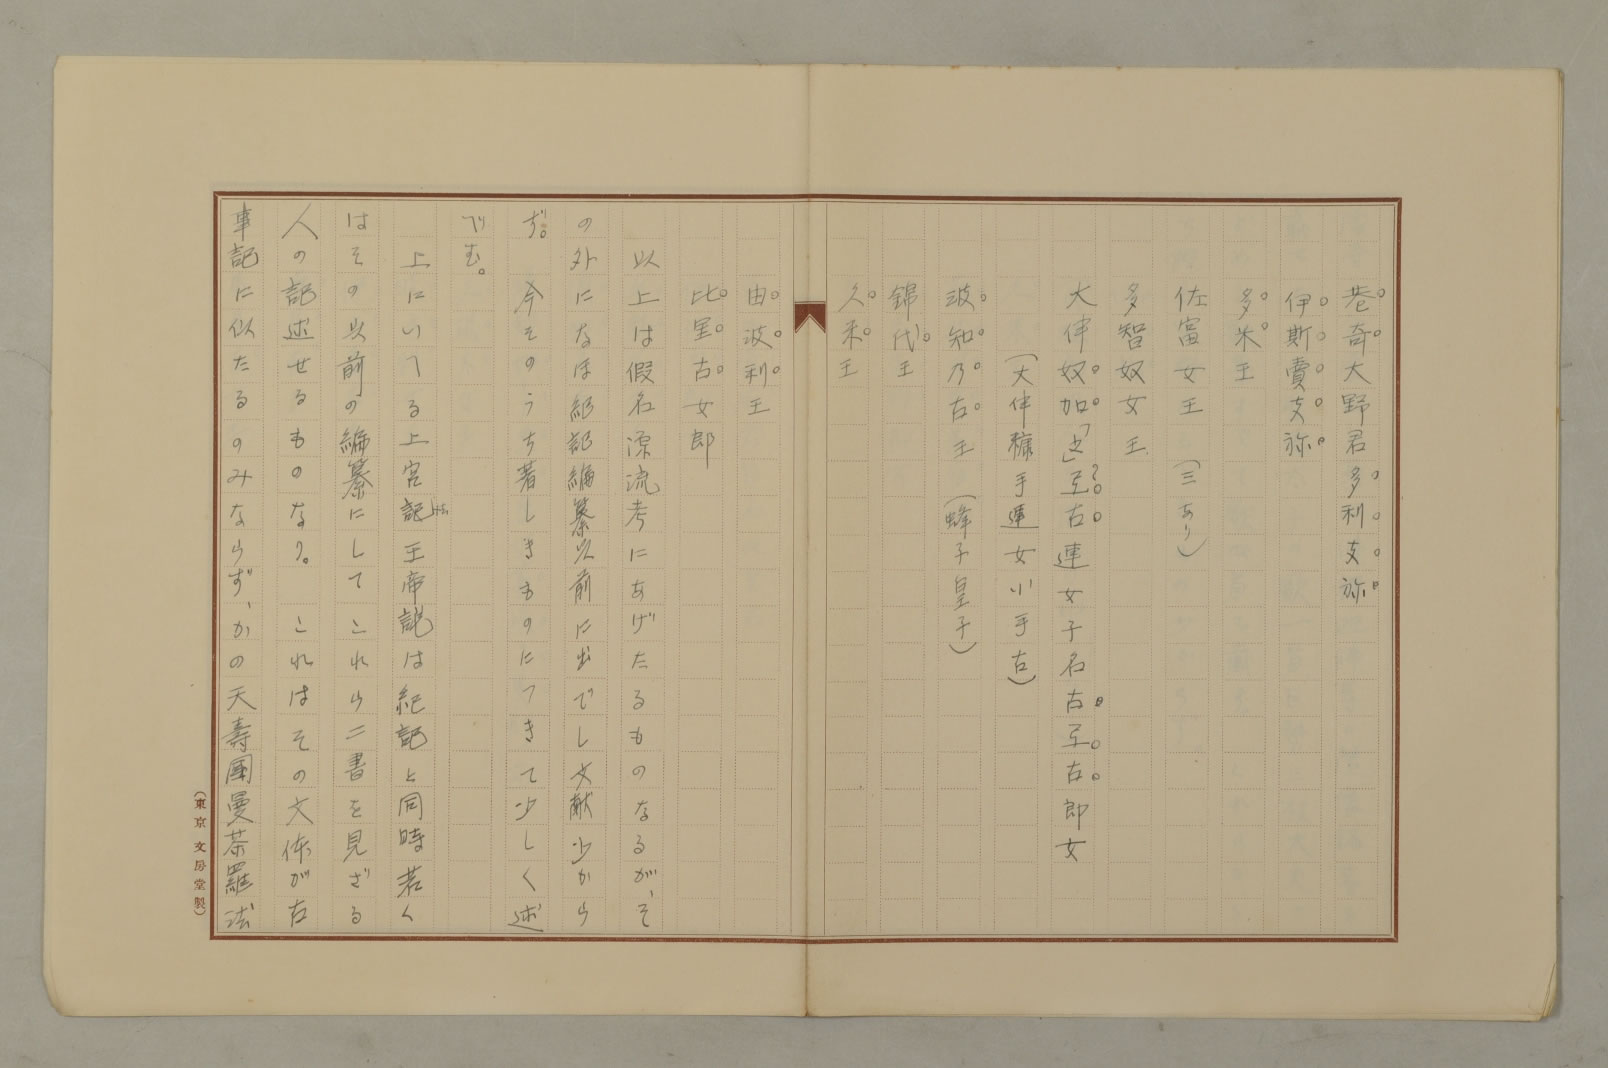 巷奇大野君多利支弥
伊斯賣支弥
多米王
佐富女王 （三あり）
多智奴女王
大伴奴加「之」互古連女子名古互古郎女
（大伴糠手連女小手古）
波知乃古王（蜂子皇子）
錦代王
久米王
由波利王
比里古女郎
以上は假名源流考にあげたるものなるが、そ
の外になほ紀記編纂以前に出でし文献少から
ず。 今そのうち著しきものにつきて少しく述
べむ。
上にいへる上宮記 王帝説は紀記と同時若く
はその以前の編纂にして これら二書を見ざる
人の記述せるものなり。 これはその文体が古
事記に似たるのみならず、かの天壽國曼荼羅法
（東京 文房堂製）